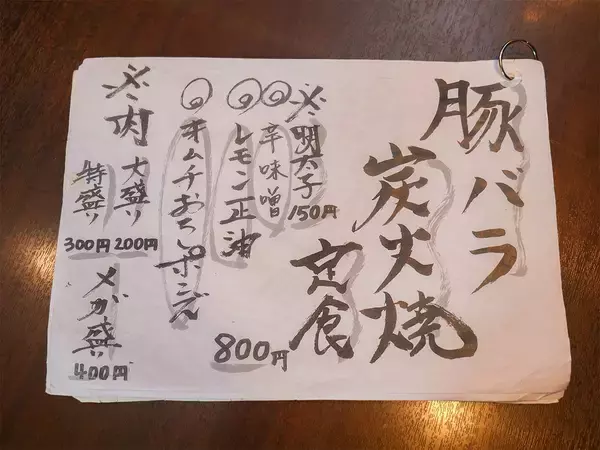 豚バラ
炭火焼
定食
800円
※明太子
150円
◎辛味噌
◎レモン正油
◎キムチおろしポンズ
※肉
大盛り
200円
特盛り
300円
メガ盛り
400円